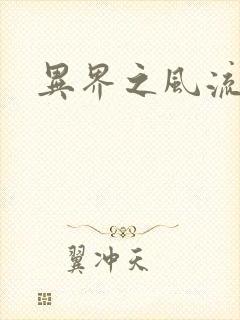 異界之風流
翼冲天